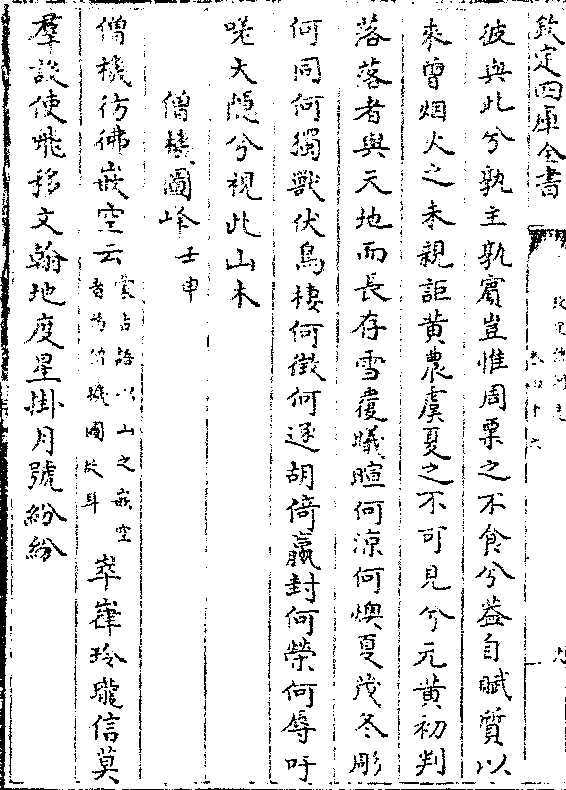 欽定四庫全書
彼與此兮孰主孰賓豈惟周粟之不食兮葢自賦質以
來曾烟火之未親詎黄農虞夏之不可見兮元黄初判
落落者與天地而長存雪覆曦暄何涼何燠夏茂冬彫
何同何獨獸伏鳥棲何徵何逐胡倚嬴封何榮何辱吁
嗟大隱兮視此山木
僧機圖峰壬申
僧機彷彿嵌空云蒙古語以山之嵌空者為僧機圖故耳崒嵂玲瓏信莫
羣談使飛移文翰地度星掛月號紛紛